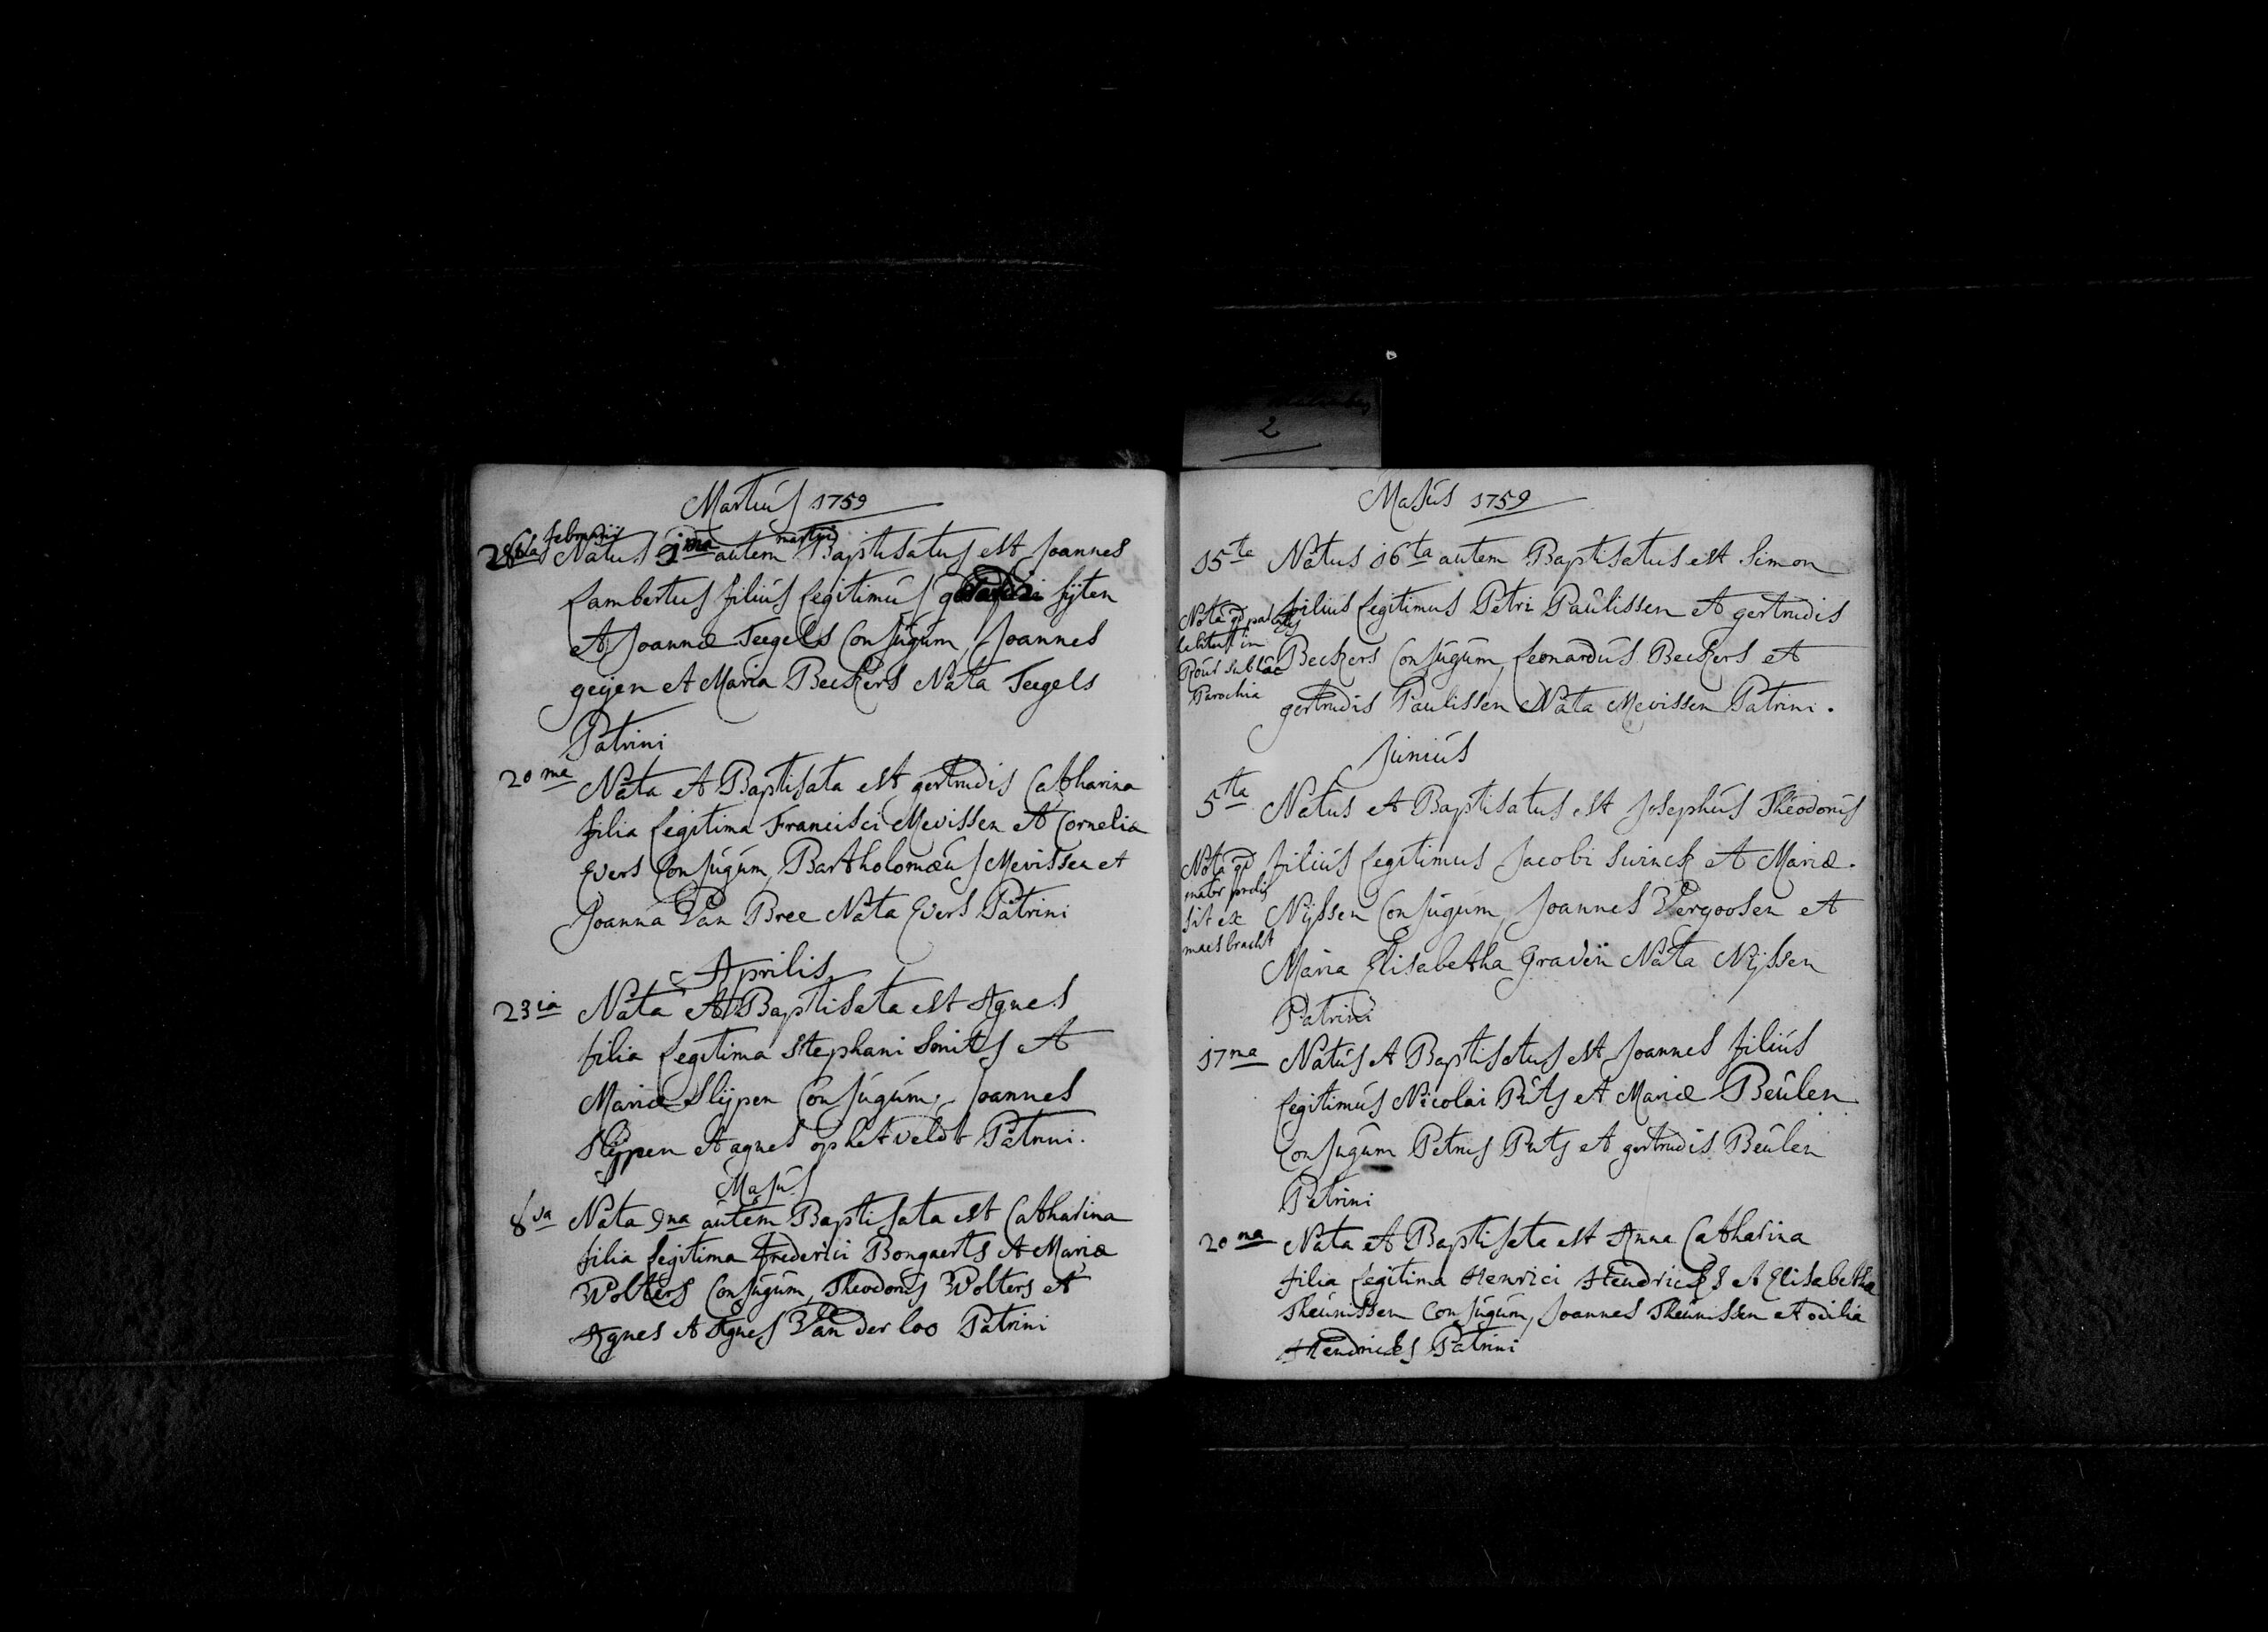 2
Martius 1759
februarii martii
28va Natus 1ma autem Baptisatus est Joannes
Lambertus filius legitimus gerardi sijten
et Joannæ Teegels Conjugum, Joannes
geijen et Maria Beckers Nata Teegels
Patrini
20ma Nata et Baptisata est gertrudis Catharina
filia legitima Francisci Mevissen et Corneliæ
Evers Conjugum, Bartholomæus Mevissen et
Joanna Van Bree Nata Evers Patrini
Aprilis
23ia Nata et Baptisata est Agnes
filia legitima Stephani Smits et
Mariæ Slijpen Conjugum, Joannes
Slijpen et agnes ophetveldt Patrini.
Majus
8va Nata 9na autem Baptisata est Catharina
filia legitima frederici Bongaerts et Mariæ
Wolters Conjugum, Theodorus Wolters et
Agnes et Agnes Van der loo Patrini
Majus 1759
15ta Natus 16ta autem Baptisatus est Simon
filius legitimus Petri Paulissen et gertrudis
Beckers Conjugum, Leonardus Beckers et
gertrudis Paulissen Nata Mevissen Patrini.
Nota qd
in
sub hac
Parochia
Junius
5ta Natus et Baptisatus est Josephus Theodorus
filius legitimus Jacobi Swinck et Mariæ
Nijssen Conjugum, Joannes Vergoosen et
Maria Elisabetha Graven Nata Nijssen
Patrini
Nota qd
mater prolis
sit ex
maesbracht
17ma Natus et Baptisatus est Joannes filius
legitimus Nicolai Puts et Mariæ Beulen
Conjugum Petrus Puts et gertrudis Beulen
Patrini
20ma Nata et Baptisata est Anna Catharina
filia legitima Henrici Hendricks et Elisabethæ
Theunissen Conjugum, Joannes Theunissen et odilia
Hendricks Patrini